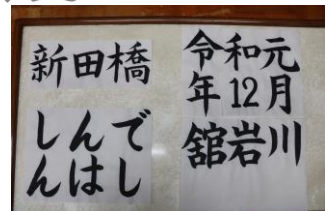 新田橋
しんで
んはし
令和元
年12月
舘岩川